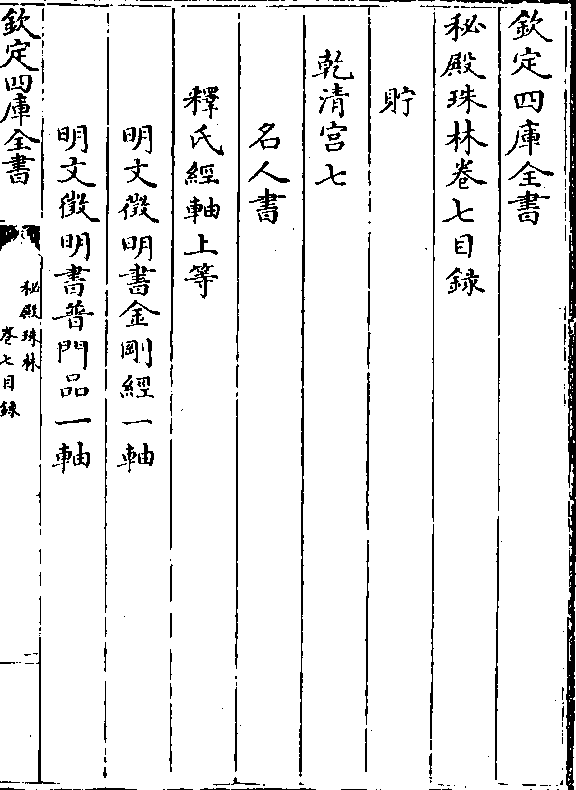 欽定四庫全書
秘殿珠林卷七目録
貯
乾清宫七
名人書
釋氏經軸上等
明文徵明書金剛經一軸
明文徵明書普門品一軸
欽定四庫全書
秘殿珠林
卷七目録